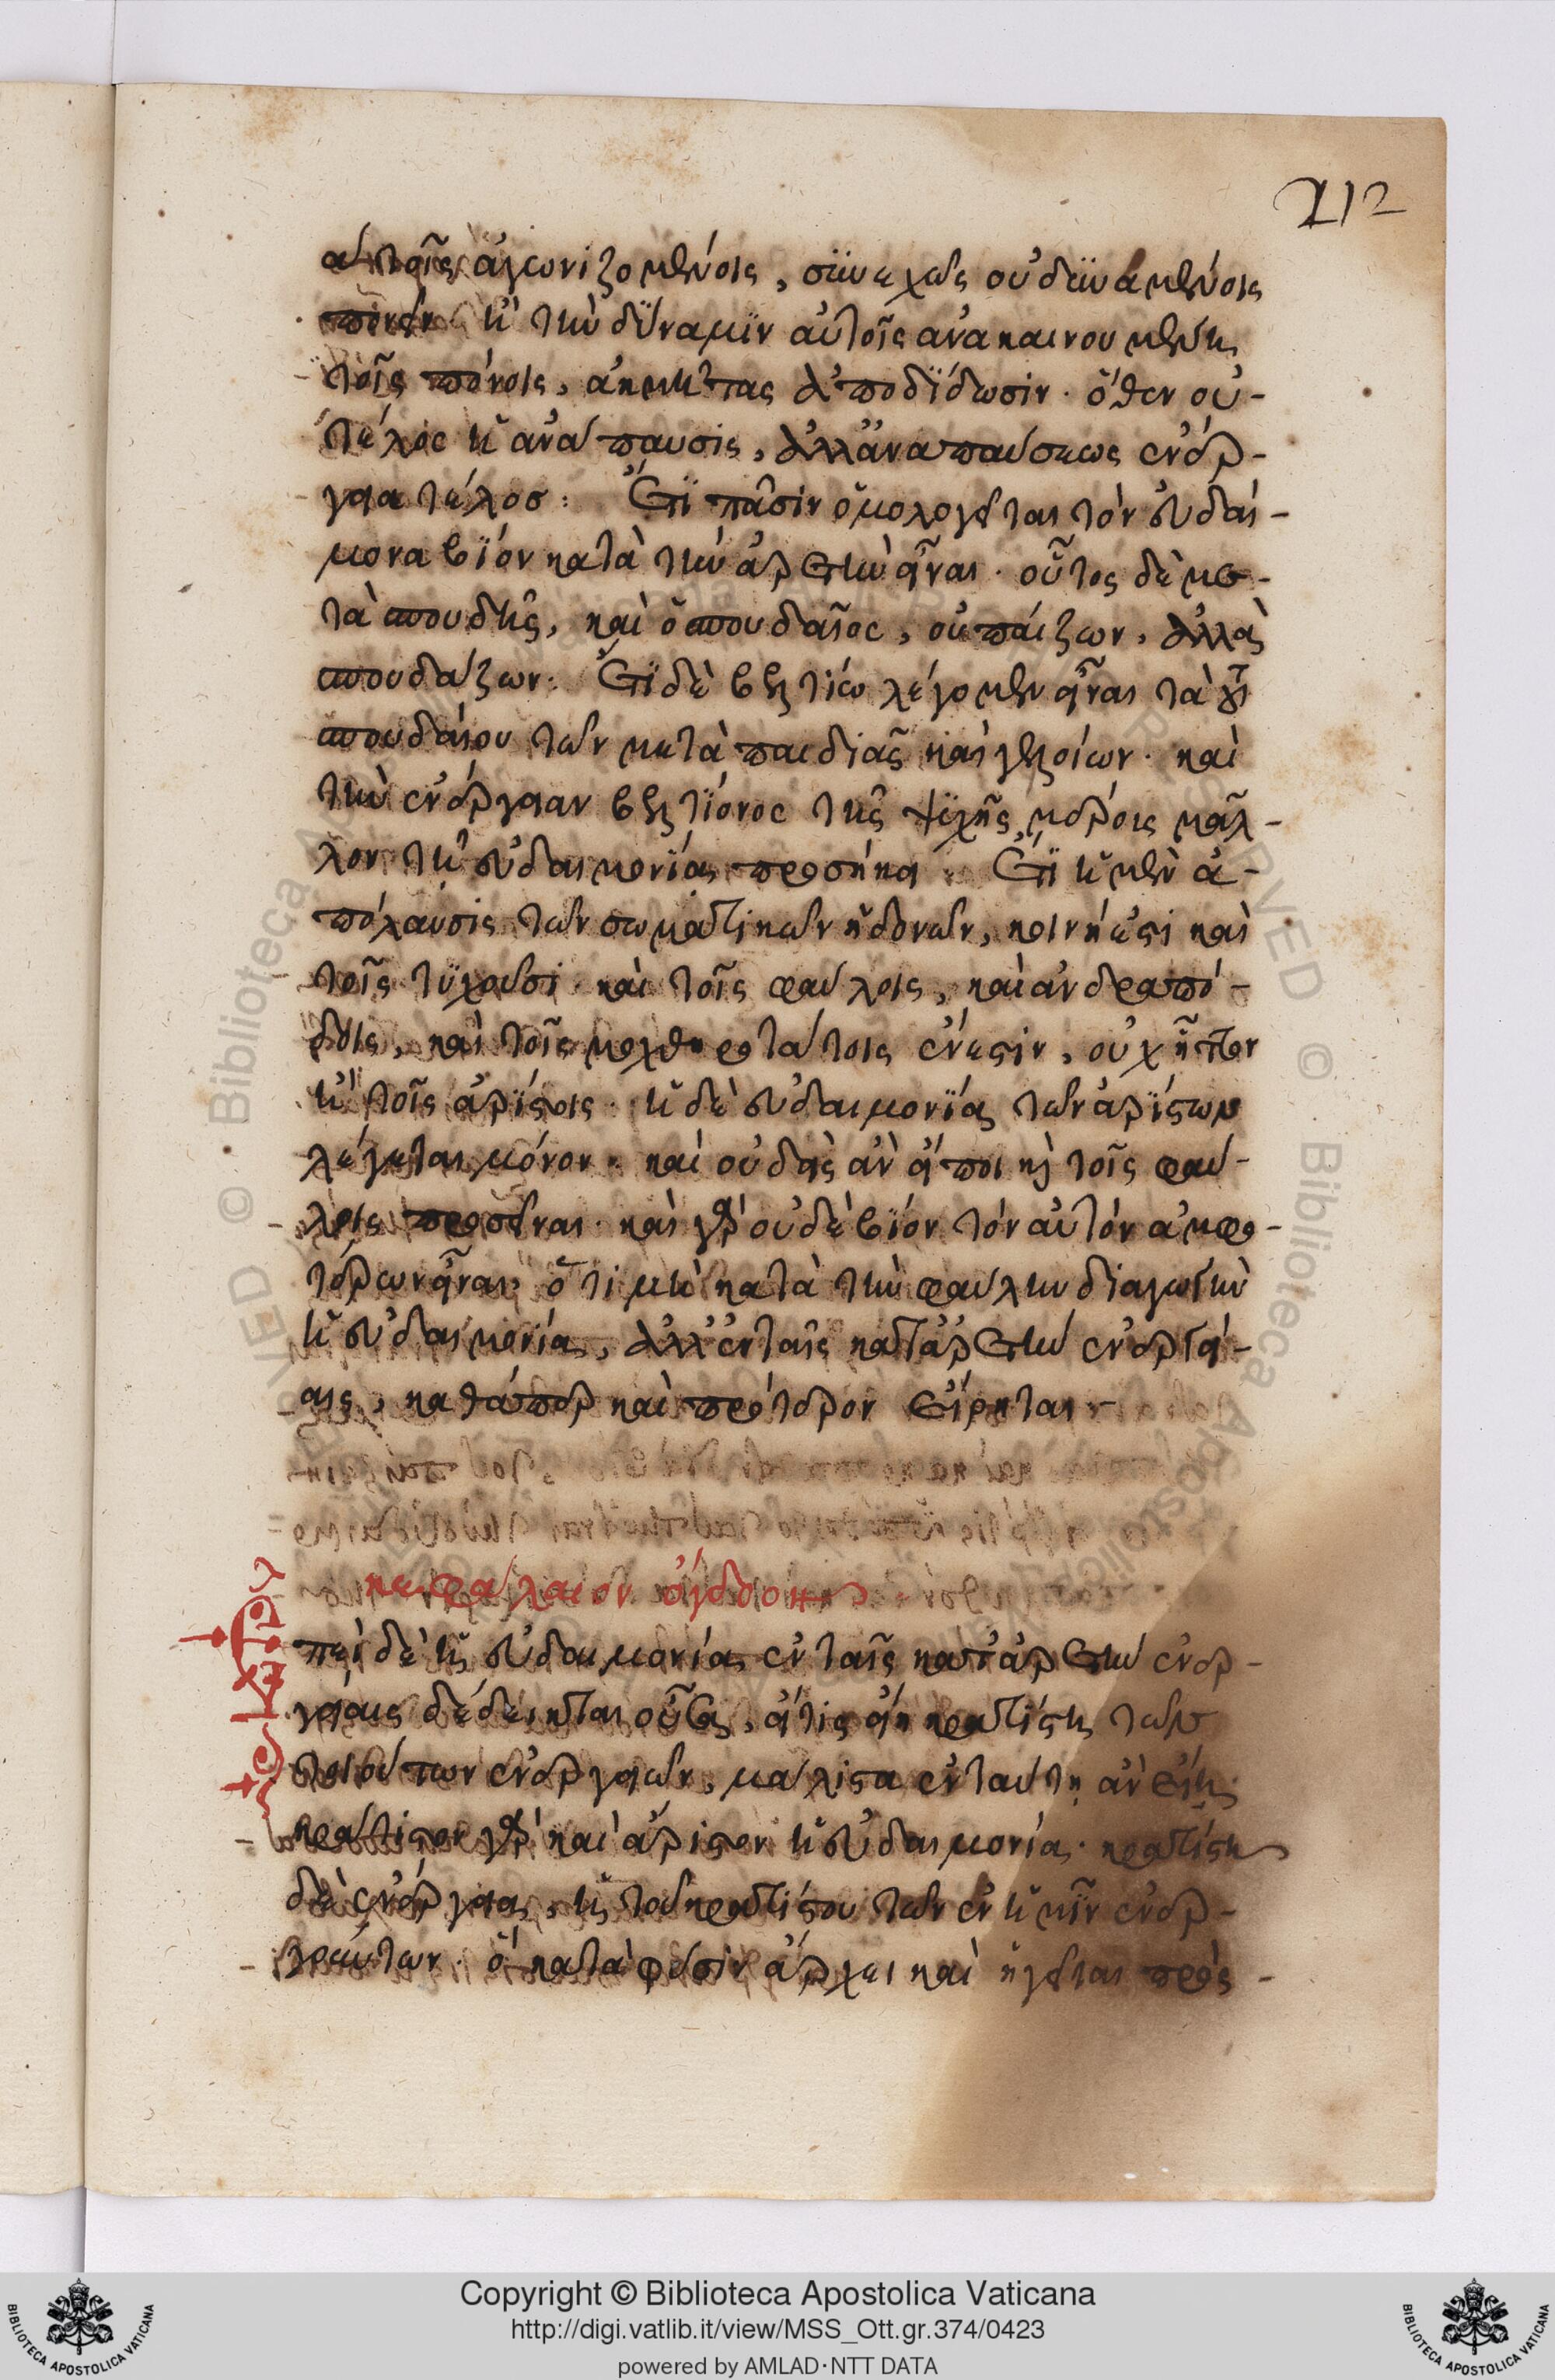 212
αὐτοῖς ἀγωνιζομένοις, συνεχῶς οὐ δυναμένοις
πονεῖν ἢ τὴν δύναμιν αὐτοῖς ἀνακαινουμένη
τοῖς πόνοις, ἀκμῆτας ἀποδίδωσιν. ὅθεν οὐ-
τέλος ἡ ἀνάπαυσις, ἀλλ' ἀναπαύσεως ἐνέρ-
γεια τέλος: Ἔτι πᾶσιν ὁμολογεῖται τὸν εὐδαί-
μονα βίον κατὰ τὴν ἀρετὴν εἶναι. οὗτος δὲ με-
τὰ σπουδῆς, καὶ ὁ σπουδαῖος, οὐ παίζων, ἀλλὰ
σπουδάζων: Ἔτι δὲ βελτίω λέγομεν εἶναι τὰ τοῦ
σπουδαίου τῶν μετὰ παιδιᾶς καὶ γελοίων. καὶ
τὴν ἐνέργειαν βελτίονος τῆς ψυχῆς μέρους μᾶλ-
λον τῇ εὐδαιμονίᾳ προσήκει: Ἔτι ἡ μὲν ἀ-
πόλαυσις τῶν σωματικῶν ἡδονῶν, κοινή ἐστι καὶ
τοῖς τυχοῦσι καὶ τοῖς φαύλοις, καὶ ἀνδραπό-
δοις, καὶ τοῖς μοχθηροτάτοις ἔνεστιν, οὐχ ἧττον
ἢ τοῖς ἀρίστοις. ἡ δὲ εὐδαιμονία τῶν ἀρίστων
λέγεται μόνον. καὶ οὐδεὶς ἂν εἴποι καὶ τοῖς φαύ-
λοις προσεῖναι. καὶ γὰρ οὐδὲ βίον τὸν αὐτὸν ἀμφο-
τέρων εἶναι, ὅτι μὴ κατὰ τὴν φαύλην διαγωγὴν
ἡ εὐδαιμονία, ἀλλ' ἐν ταῖς κατ' ἀρετὴν ἐνεργεί-
αις, καθάπερ καὶ πρότερον εἴρηται
κεφάλαιον ὄγδοον
πεὶ δὲ ἡ εὐδαιμονία ἐν ταῖς κατ' ἀρετὴν ἐνερ-
γείαις δέδεικται οὖσα, εἴ τις εἴη κρατίστη τῶν
τοιούτων ἐνεργειῶν, μάλιστα ἐν ταύτῃ ἂν εἴη
κράτιστον γὰρ καὶ ἄριστον ἡ εὐδαιμονία. κρατίστη
δὲ ἐνέργεια, ἡ τοῦ κρατίστου τῶν ἐν ἡμῖν ἐνερ-
γούντων. ὃ κατὰ φύσιν ἄρχει καὶ ἡγεῖται πρὸς
Copyright © Biblioteca Apostolica Vaticana
http://digi.vatlib.it/view/MSS_Ott.gr.374/0423
powered by AMLAD·NTT DATA
BIBLIOTECA APOSTOLICA VATICANA
BIBLIOTECA APOSTOLICA VATICANA